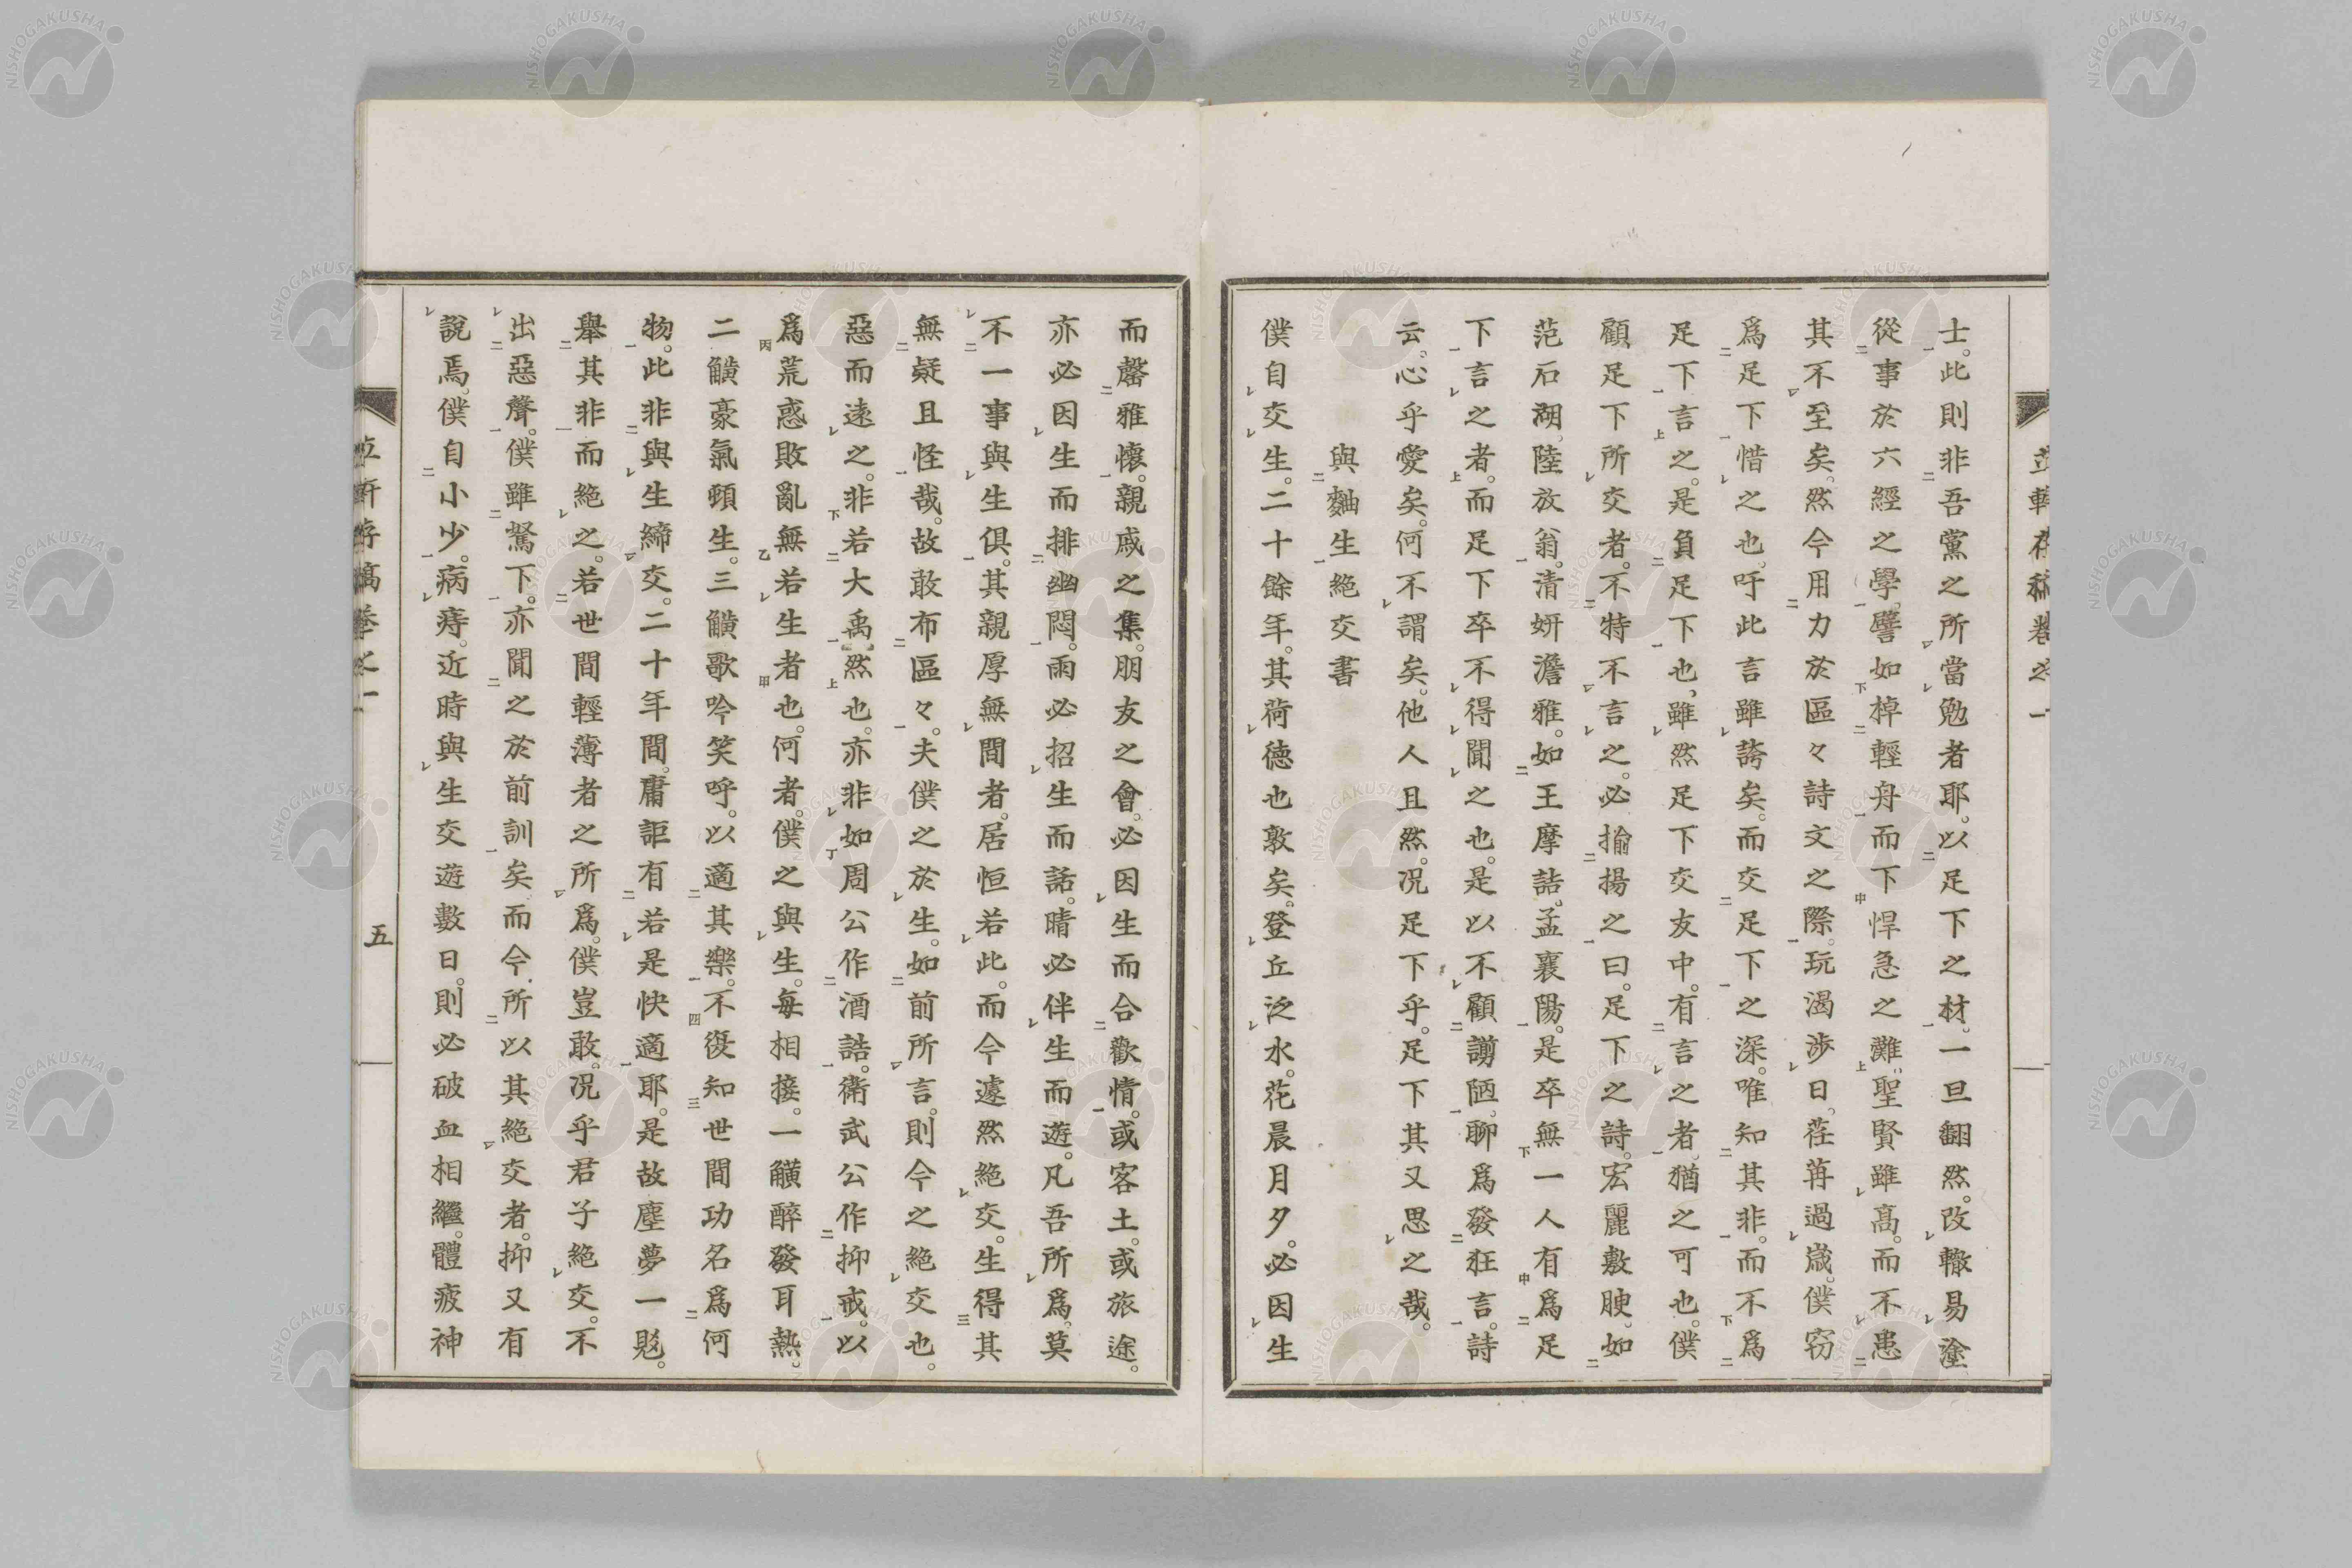 士。此則非吾黨之所當勉者耶。以足下之材。一旦翻然。改轍易塗
從事於六經之學。譬如棹輕舟而下悍急之灘。聖賢雖高。而不患
其不至矣。然今用力於區々詩文之際。玩渴涉日。荏苒過歲。僕窃
爲足下惜之也。吁此言雖誇矣。而交足下之深。唯知其非。而不爲
足下言之。是負足下也、雖然足下交友中。有言之者。猶之可也。僕
顧足下所交者。不特不言之。必揄揚之曰。足下之詩。宏麗敷腴。如
范石湖。陸放翁。清妍澹雅。如王摩詰。孟襄陽。是卒無一人有爲足
下言之者。而足下卒不得聞之也。是以不顧謭陋。聊爲發狂言。詩
云。心乎愛矣。何不謂矣。他人且然。况足下乎。足下其又思之哉。
與麯生絕交書
僕自交生。二十餘年。其荷德也敦矣。登丘泛水。花晨月夕。必因生
而罄雅懷。親戚之集。朋友之會。必因生而合歡情。或客土。或旅途。
亦必因生而排幽悶。雨必招生而話。晴必伴生而遊。凡吾所爲。莫
不一事與生俱。其親厚無間者。居恒若此。而今遽然絕交。生得其
無疑且怪哉。故敢布區々。夫僕之於生。如前所言。則今之絕交也。
惡而遠之。非若大禹然也。亦非如周公作酒誥。衛武公作抑戒。以
爲荒惑敗亂無若生者也。何者。僕之與生。每相接。一觥醉發耳熱。
二觥豪氣頓生。三觥歌吟笑呼。以適其樂。不復知世間功名爲何
物。此非與生締交。二十年間。庸詎有若是快適耶。是故塵夢一覺。
舉其非而絕之。若世間輕薄者之所爲。僕豈敢。况乎君子絕交。不
出惡聲。僕雖駑下。亦聞之於前訓矣而今所以其絕交者。抑又有
說焉。僕自小少。病痔。近時與生交遊數日。則必破血相繼。體疲神
五